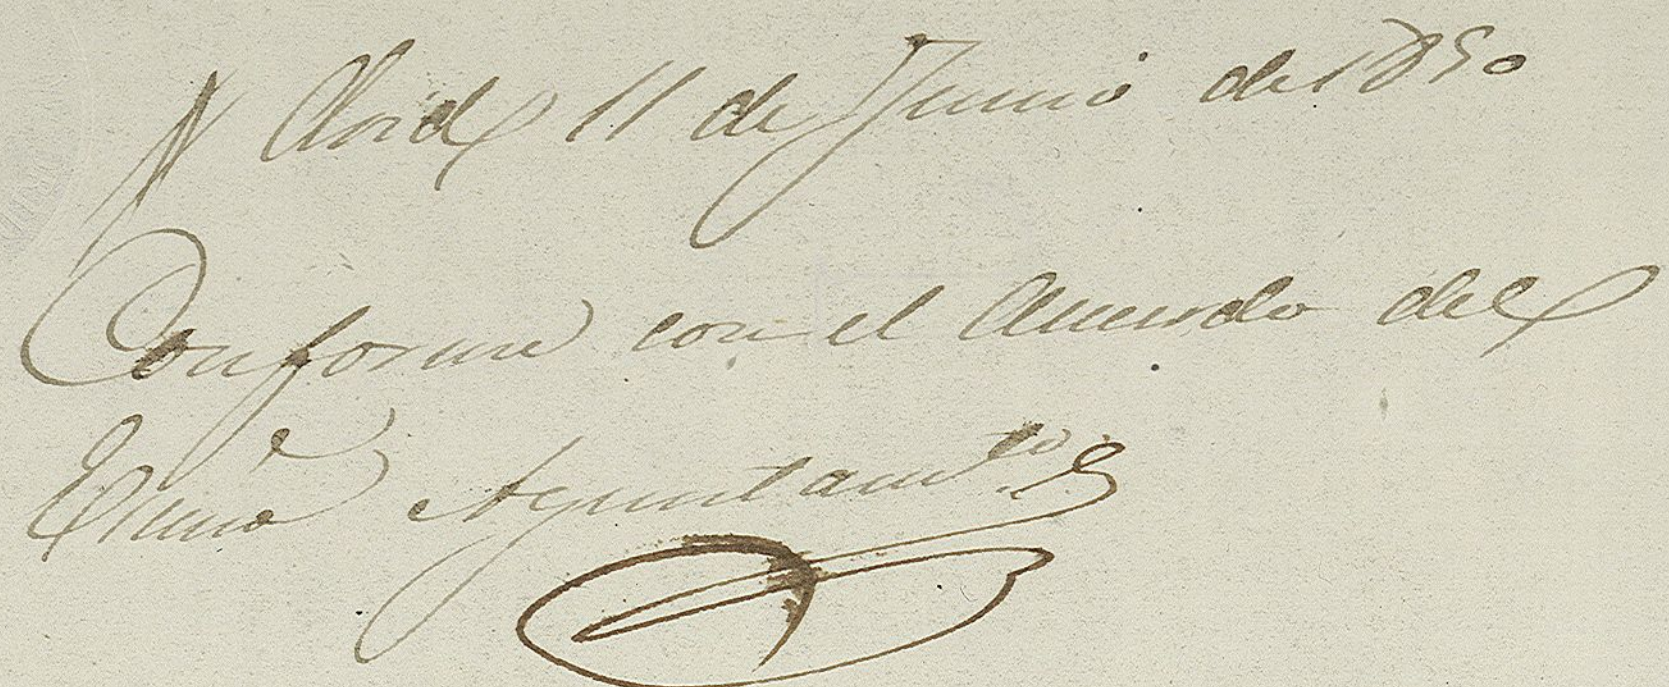 Madrid 11 de Junio de 1850
Conforme con el Acuerdo del
Exmo Ayuntamto